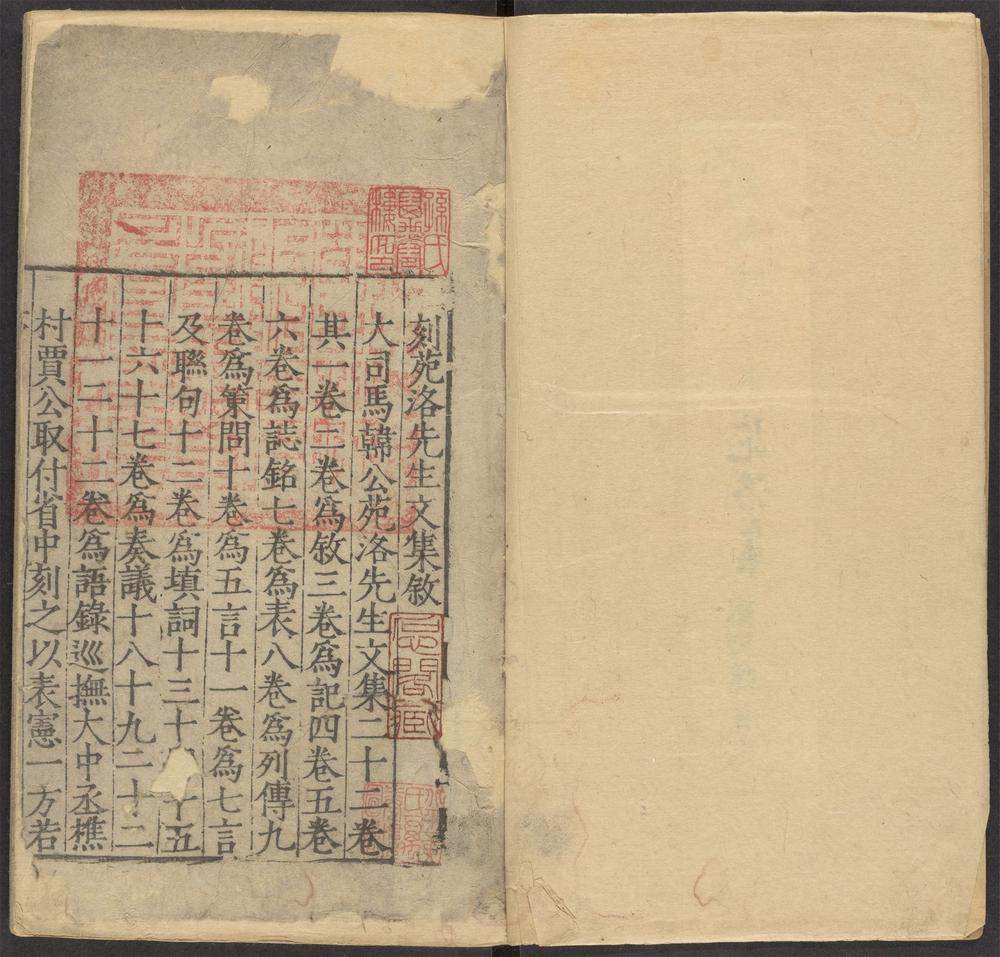 刻苑洛先生文集敘
大司馬韓公苑洛先生文集二十二卷
其一卷二卷爲敘三卷爲記四卷五卷
六卷爲誌銘七卷爲表八卷爲列傳九
卷爲策問十卷爲五言十一卷爲七言
及聮句十二卷爲填詞十三十十五
十六十七卷爲奏議十八十九二十二
十一二十二卷爲語錄巡撫大中丞樵
村賈公取付省中刻之以表憲一方若